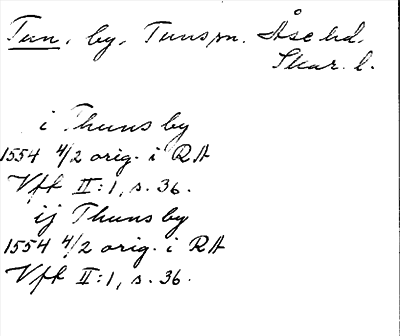 Tun, by, Tuns sn. Åse hd.
Skar. l.
i Thuns by
1554 4/2 orig. i RA
Vfk II:1, s. 36.
ij Thuns by
1554 4/2 orig. i RA
Vfk II:1, s. 36.